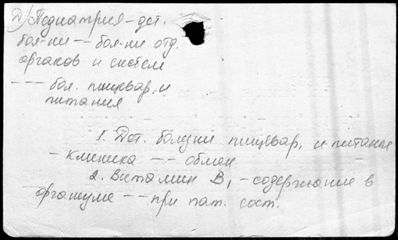 Д) Педиатрия – дет.
бол-ни -- бол-ни отд.
органов и систем
--- бол. пищевар. и
питания
1. Дет. болезни пищевар. и питание
- клиника -- обмен
2. Витамин В₁ - содержание в
организме -- при пат. сост.